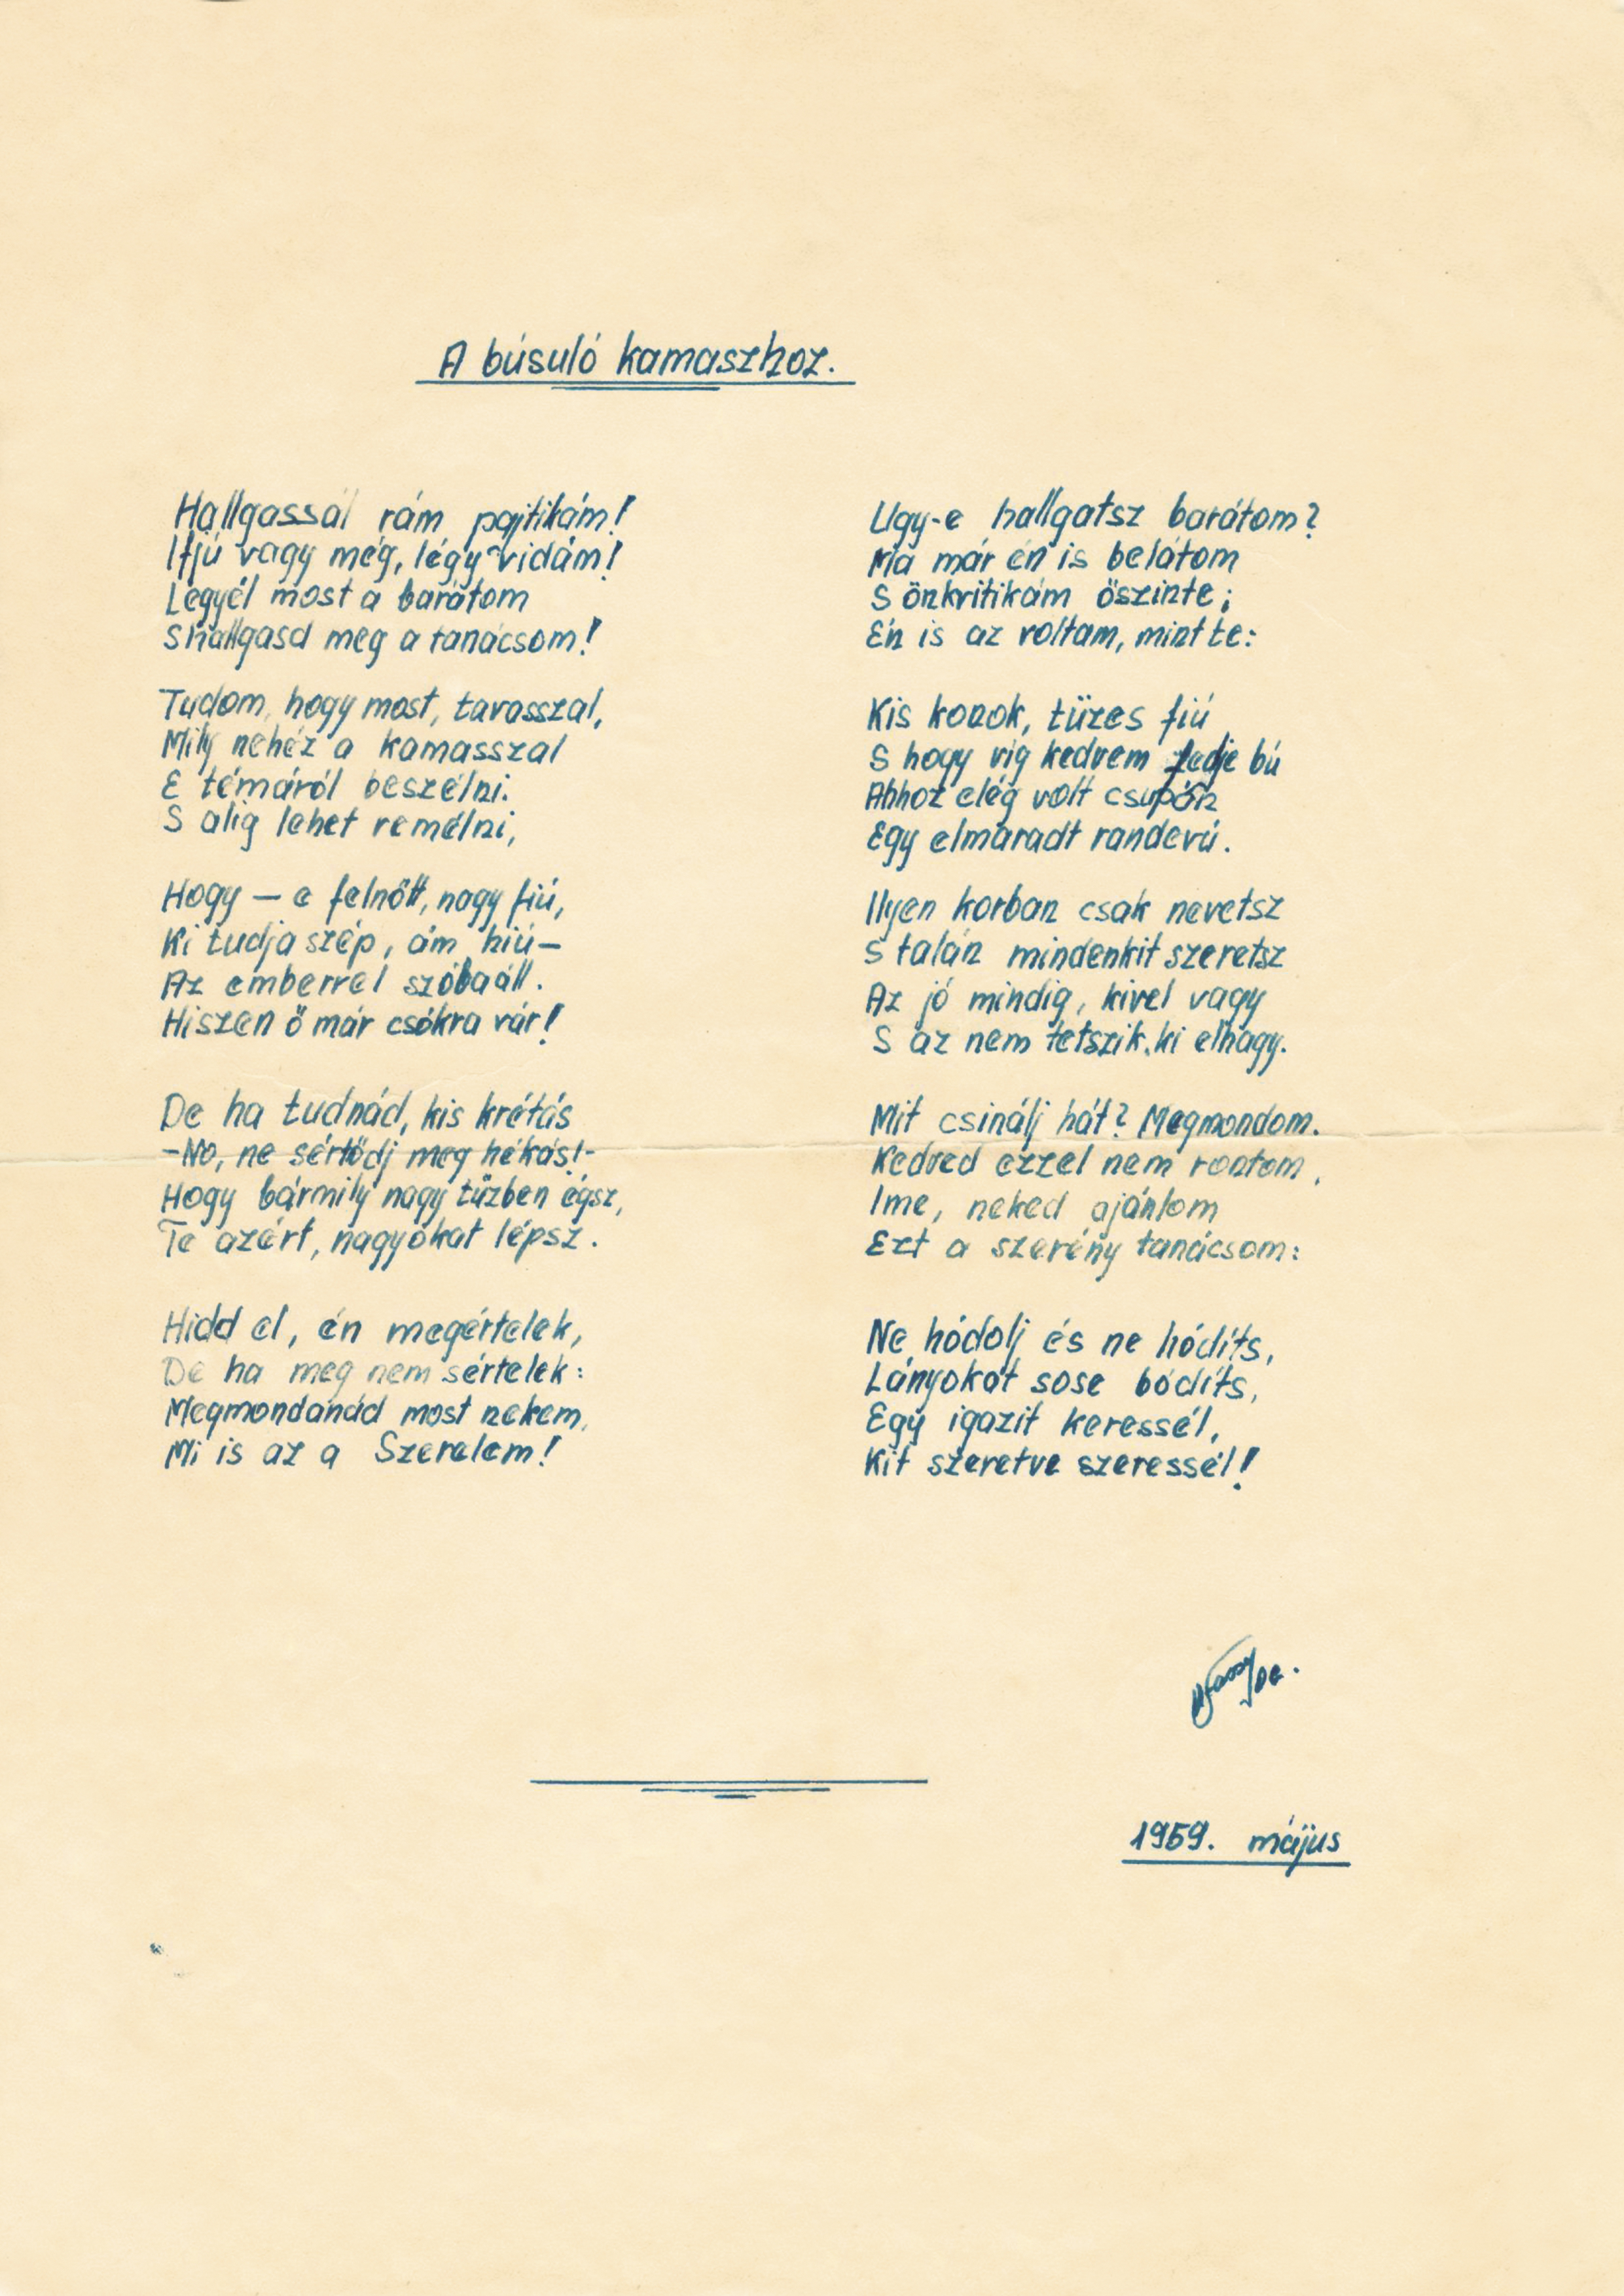 A búsuló kamaszhoz.
Hallgassál rám pajtikám!
Ifjú vagy még, légy vidám!
Legyél most a barátom
S hallgasd meg a tanácsom!
Tudom, hogy most, tavasszal,
Mily nehéz a kamasszal
E témáról beszélni.
S alig lehet remélni,
Hogy – e felnőtt, nagy fiú,
Ki tudja szép, ám hiú –
Az emberrel szóbaáll.
Hiszen ő már csókra vár!
De ha tudnád, kis krétás
-No, ne sértődj meg hékás!-
Hogy bármily nagy tűzben égsz,
Te azért, nagyokat lépsz.
Hidd el, én megértelek,
De ha meg nem sértelek:
Megmondanád most nekem,
Mi is az a Szerelem!
Ugy-e hallgatsz barátom?
Ma már én is belátom
S önkritikám öszinte;
Én is az voltam, mint te:
Kis konok, tüzes fiú
S hogy vig kedvem fedje bú
Ahhoz elég volt csupán
Egy elmaradt randevú.
Ilyen korban csak nevetsz
S talán mindenkit szeretsz
Az jó mindig, kivel vagy
S az nem tetszik, ki elhagy.
Mit csinálj hát? Megmondom.
Kedved ezzel nem rontom,
Ime, neked ajánlom
Ezt a szerény tanácsom:
Ne hódolj és ne hódíts,
Lányokat sose bódíts,
Egy igazit keressél,
Kit szeretve szeressél!
1959. május